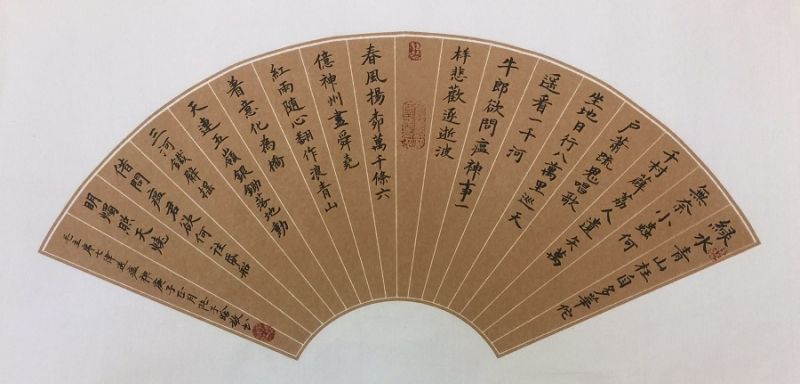 綠水青山枉自多華佗
無奈小蟲何
千村薜荔人遺矢萬
戶蕭疏鬼唱歌
坐地日行八萬里巡天
遥看一千河
牛郎欲問瘟神事一
样悲歡逐逝波
春風揚柳萬千條六
億神州盡舜堯
紅雨隨心翻作浪青山
着意化為橋
天連五嶺銀鋤落地動
三河鐵臂摇
借問瘟君欲何往紙船
明燭照天燒
毛主席七律送瘟神庚子正月